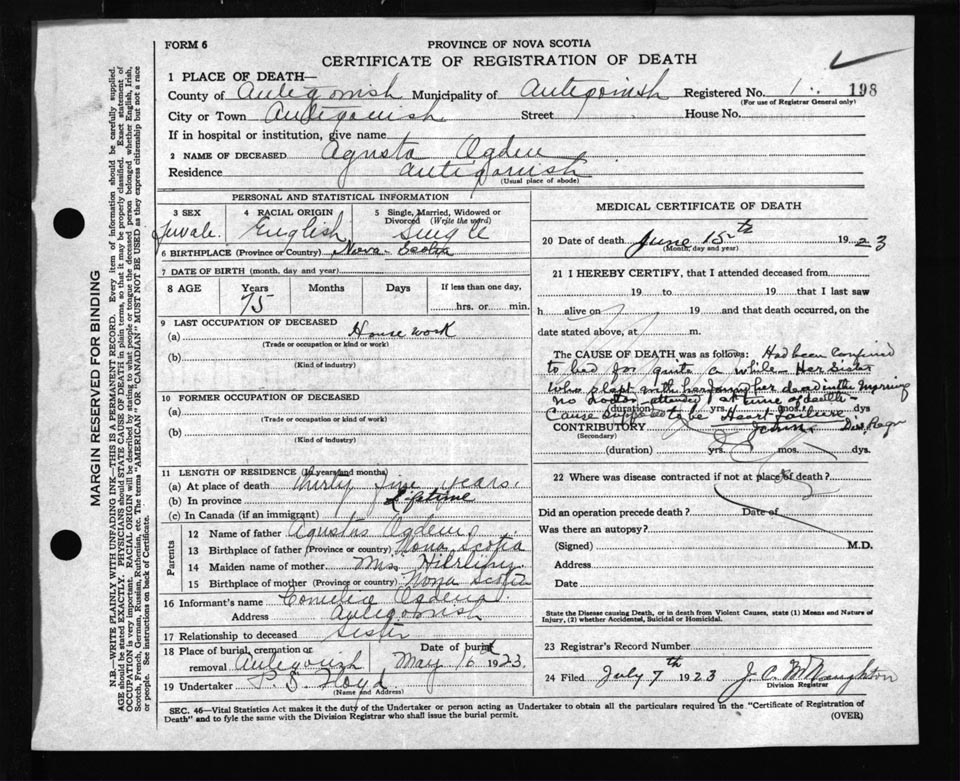 FORM 6
PROVINCE OF NOVA SCOTIA
CERTIFICATE OF REGISTRATION OF DEATH
1 PLACE OF DEATH—
County of Antegonish Municipality of Antegoinsh Registered No. 1 198
(For use of Registrar General only)
City or Town Antegonish Street House No.
If in hospital or institution, give name
2 NAME OF DECEASED Agusta Ogden
Residence antigonish
(Usual place of abode)
PERSONAL AND STATISTICAL INFORMATION
3 SEX 4 RACIAL ORIGIN 5 Single, Married, Widowed or Divorced (Write the word)
English Single
6 BIRTHPLACE (Province or Country) Nova Scotia
7 DATE OF BIRTH (month, day and year)
8 AGE Years Months Days If less than one day,
75 hrs. or min.
9 LAST OCCUPATION OF DECEASED
(a) House work
(Trade or occupation or kind or work)
(b)
(Kind of industry)
10 FORMER OCCUPATION OF DECEASED
(a)
(Trade or occupation or kind of work)
(b)
(Kind of industry)
11 LENGTH OF RESIDENCE (In years and months)
(a) At place of death thirty five years.
(b) In province Lifetime
(c) In Canada (if an immigrant)
Parents
12 Name of father Agustus Ogden
13 Birthplace of father (Province or country) Nova Scotia
14 Maiden name of mother Miss
15 Birthplace of mother (Province or country) Nova Scotia
16 Informant's name Ogden
Address Antegonish
17 Relationship to deceased Sister
18 Place of burial, cremation or removal Antegonish Date of burial May 16 1923.
19 Undertaker P. S. Floyd
(Name and Address)
MEDICAL CERTIFICATE OF DEATH
20 Date of death June 15th 1923
(Month, day and year)
21 I HEREBY CERTIFY, that I attended deceased from
19 to 19 that I last saw
h alive on 19 and that death occurred, on the
date stated above, at m.
The CAUSE OF DEATH was as follows: Had been confined
to bed for quite a while. Her sister
who slept with her found her dead in the morning
no Doctor attended at time of death
(duration) yrs. mos. dys
Cause supposed to be Heart failure
CONTRIBUTORY
(Secondary)
(duration) yrs. mos. dys.
22 Where was disease contracted if not at place of death?
Did an operation precede death? Date of
Was there an autopsy?
(Signed) M.D.
Address
Date
State the Disease causing Death, or in death from Violent Causes, state (1) Means and Nature of Injury, (2) whether Accidental, Suicidal or Homicidal.
23 Registrar's Record Number
24 Filed July 7th 1923 J. C. McNaughton
Division Registrar
SEC. 46—Vital Statistics Act makes it the duty of the Undertaker or person acting as Undertaker to obtain all the particulars required in the "Certificate of Registration of
Death" and to fyle the same with the Division Registrar who shall issue the burial permit.
(OVER)
MARGIN RESERVED FOR BINDING
N.B.—WRITE PLAINLY WITH UNFADING INK—THIS IS A PERMANENT RECORD. Every item of information should be carefully supplied.
AGE should be stated EXACTLY. PHYSICIANS should STATE CAUSE OF DEATH in plain terms, so that it may be properly classified. Exact statement of
OCCUPATION is very important. RACIAL ORIGIN will be described by stating to what people or tongue the deceased person belonged whether English, Irish,
Scotch, French, German, Russian, Ruthenian, etc. The terms "AMERICAN" or "CANADIAN" MUST NOT BE USED as they express citizenship but not a race
or people. See instructions on back of Certificate.